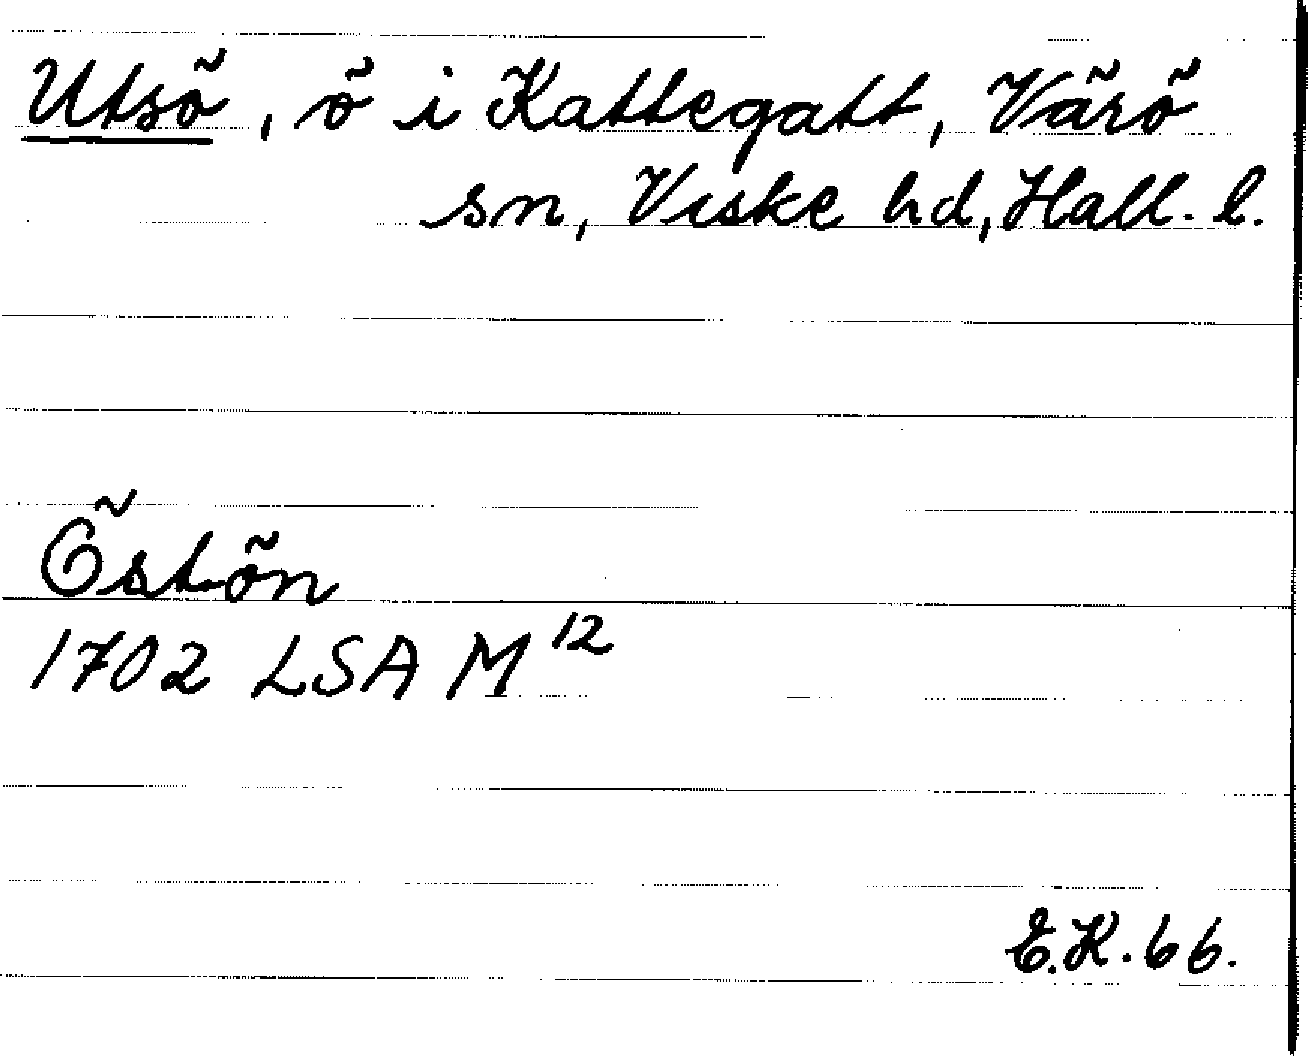 Utsö, ö i Kattegatt, Värö
sn, Viske hd, Hall. l.
Östön
1702 LSA M 12
E.K. 66.